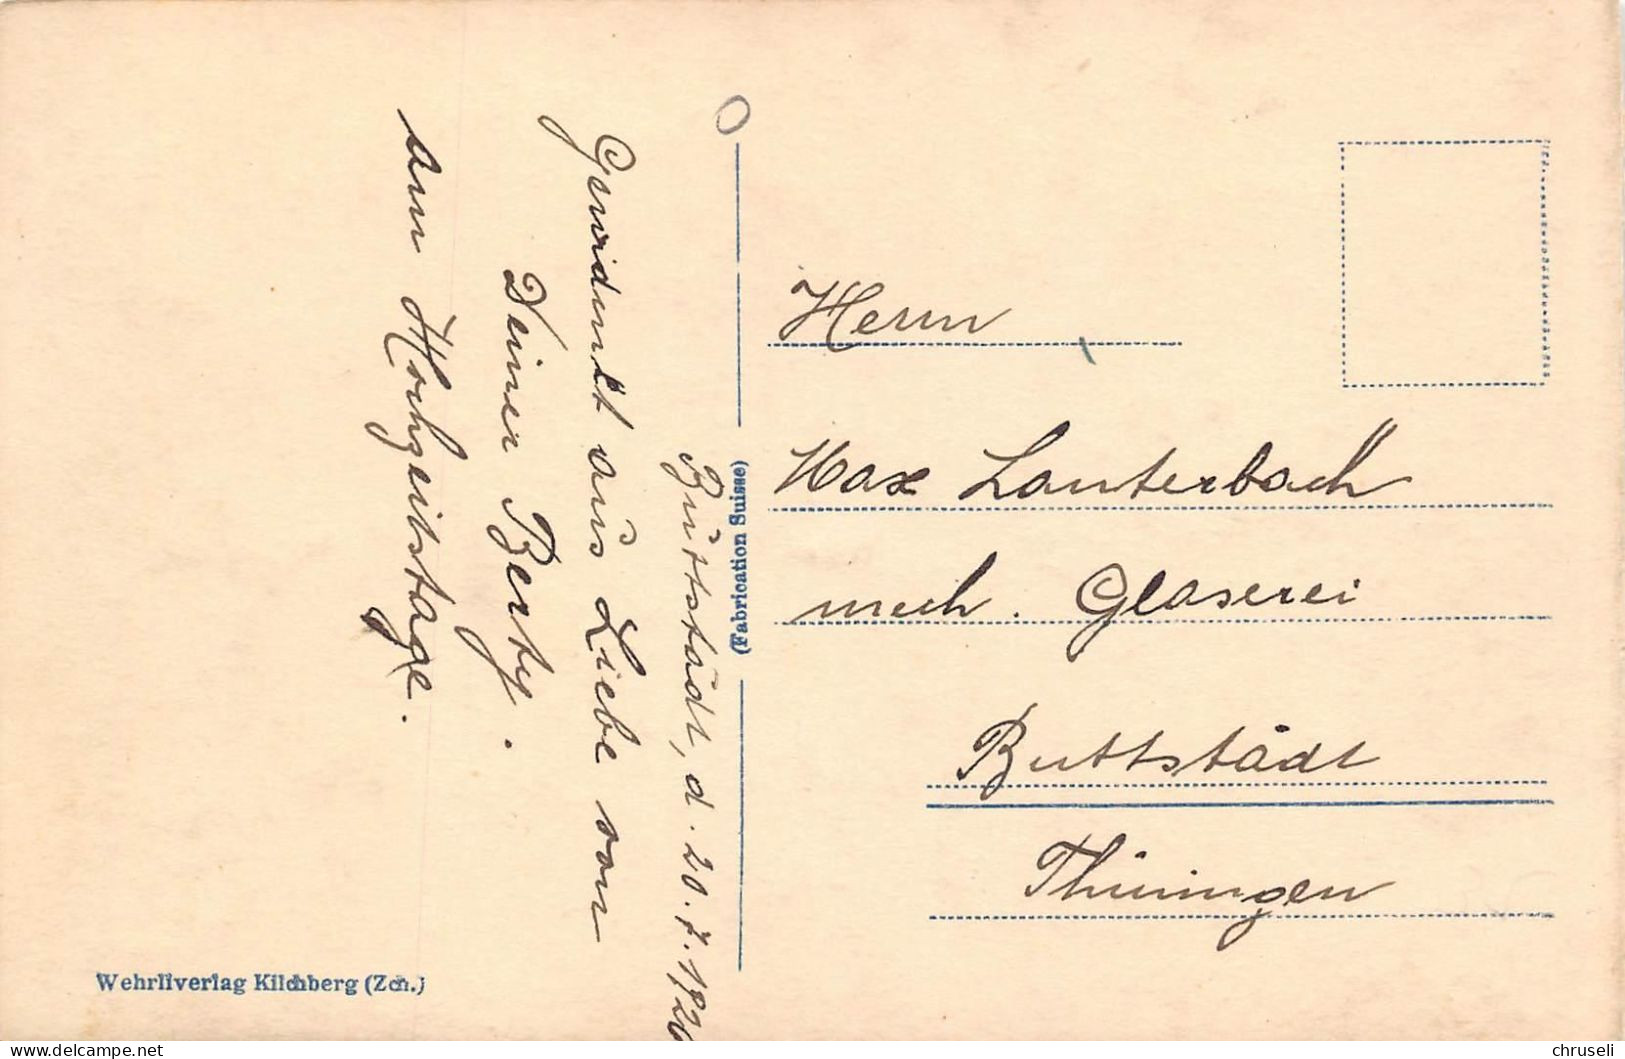 Buttstädt, d. 20.7.1920
Gewidmet aus Liebe von
Deiner Berty.
am Hochzeitstage.
(Fabrication Suisse)
Herrn
Max Lauterbach
mech. Glaserei
Buttstädt
Thüringen
Wehrliverlag Kilchberg (Zch.)
delcampe.net
chruseli